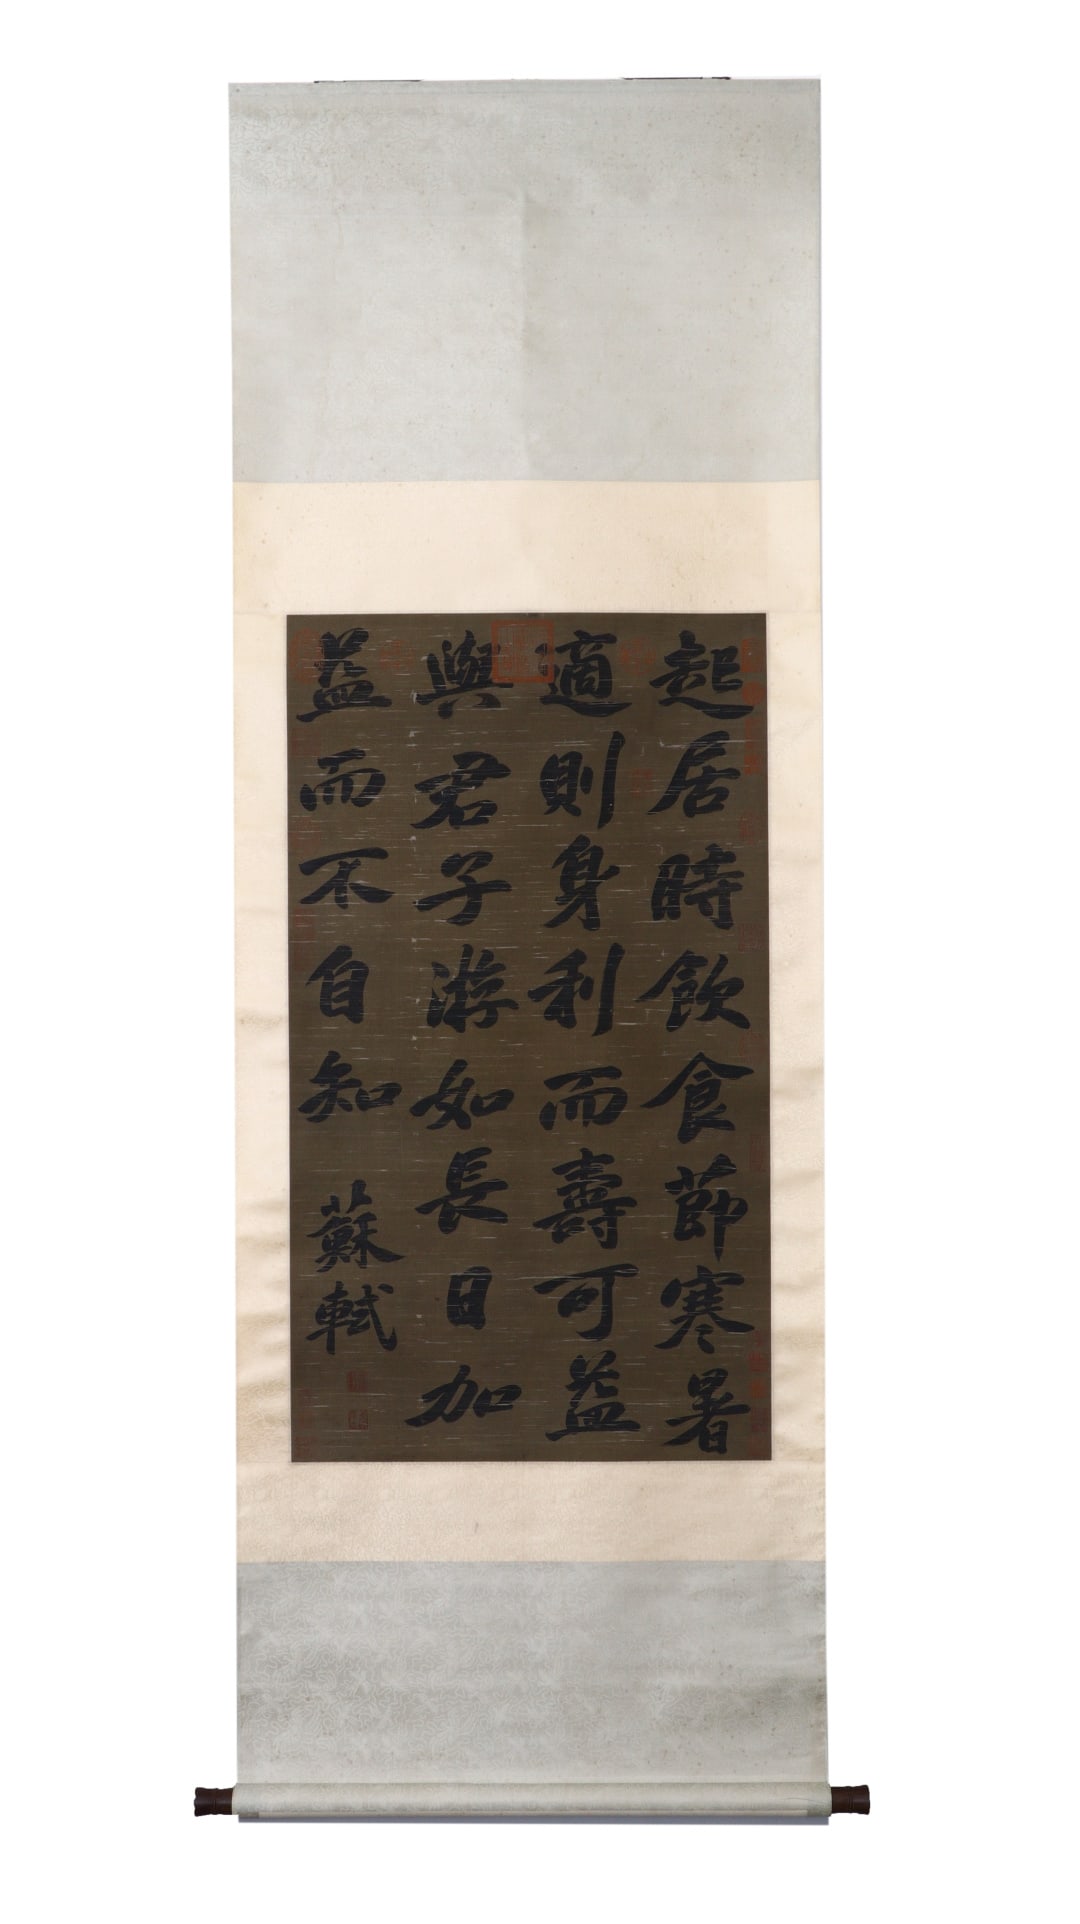 起居時飲食節寒暑
適則身利而壽可益
與君子游如長日加
益而不自知
蘇軾